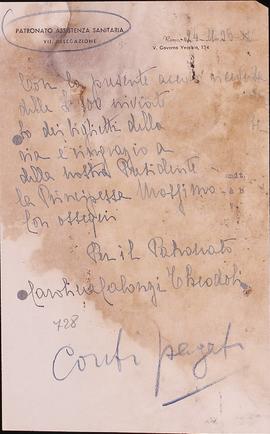 PATRONATO ASSISTENZA SANITARIA
VII. DELEGAZIONE
Roma, 24-11-26-X
V. Governo Vecchio, 134
Con la presente accuso ricevuta
delle £ 100
dei biglietti della
e ringrazio a
della nostra Presidente
la Principessa Massimo
Con ossequi
Per il Patronato
Carolina Calonzi Theodoli
728
Conti pagati